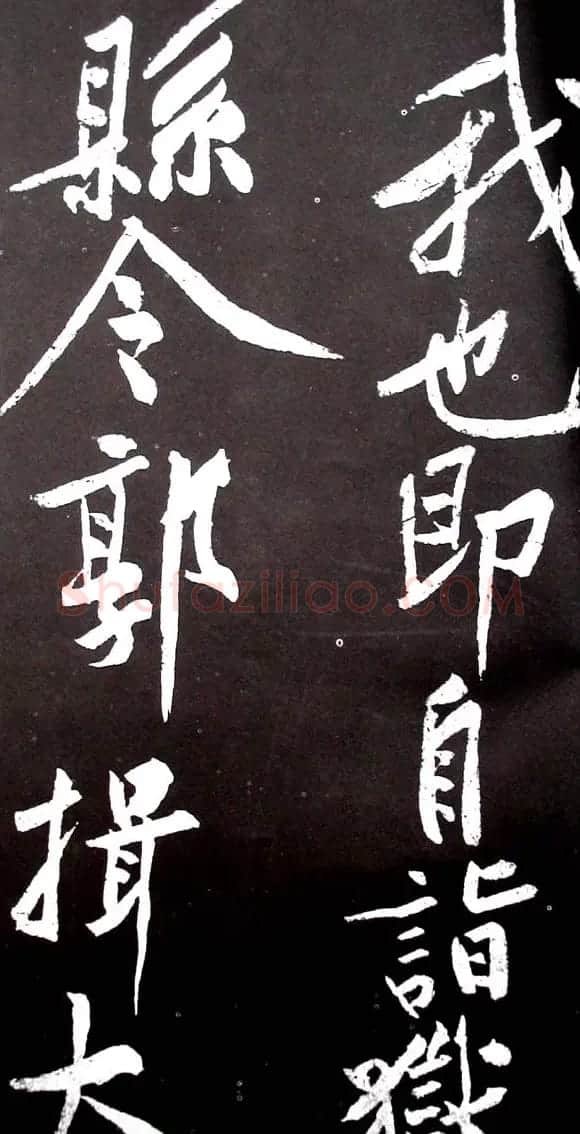 我也即自詣獄
縣令郭揖大
Shufaziliao.COM